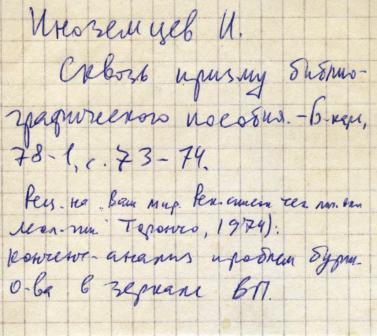 Иноземцев И.
Сквозь призму библио-
графического пособия. – Б-карь,
78-1, с. 73-74.
Рец. на „Ваш мир. Рек.
Торонто, 1974):
контент-анализ проблем бурж.
о-ва в зеркале БП.